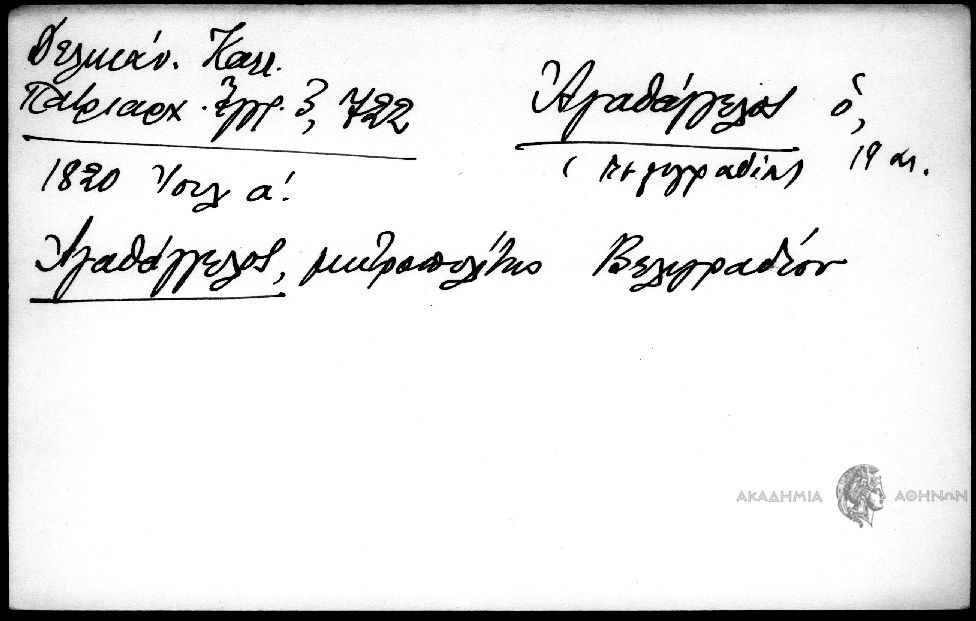 Δελικάν. Καλλ.
Πατριαρχ. Ἔγγρ. 3, 722
Ἀγαθάγγελος ὁ,
19 αι.
1820 Ἰουλ α!
Ἀγαθάγγελος, μητροπολίτης Βελιγραδίου
ΑΚΑΔΗΜΙΑ ΑΘΗΝΩΝ